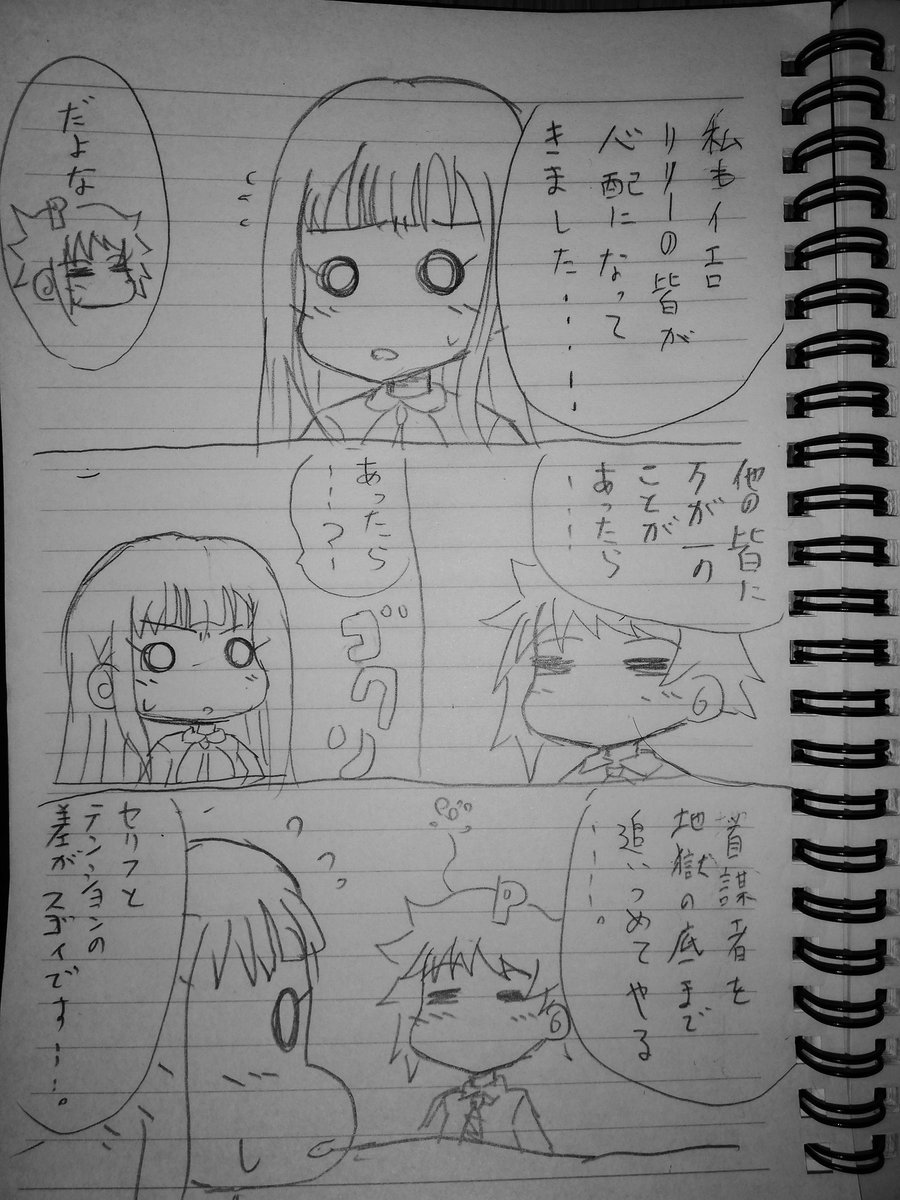 私もイエロ
リリーの皆が
心配になって
きました・・・ー
だよな
P
他の皆に
万が一の
ことが
あったら
ーーー
あったら
ーー？ー
ゴクリ
首謀者を
地獄の底まで
追いつめてやる
ーーー。
P
セリフと
テンションの
差がスゴイです・・・。